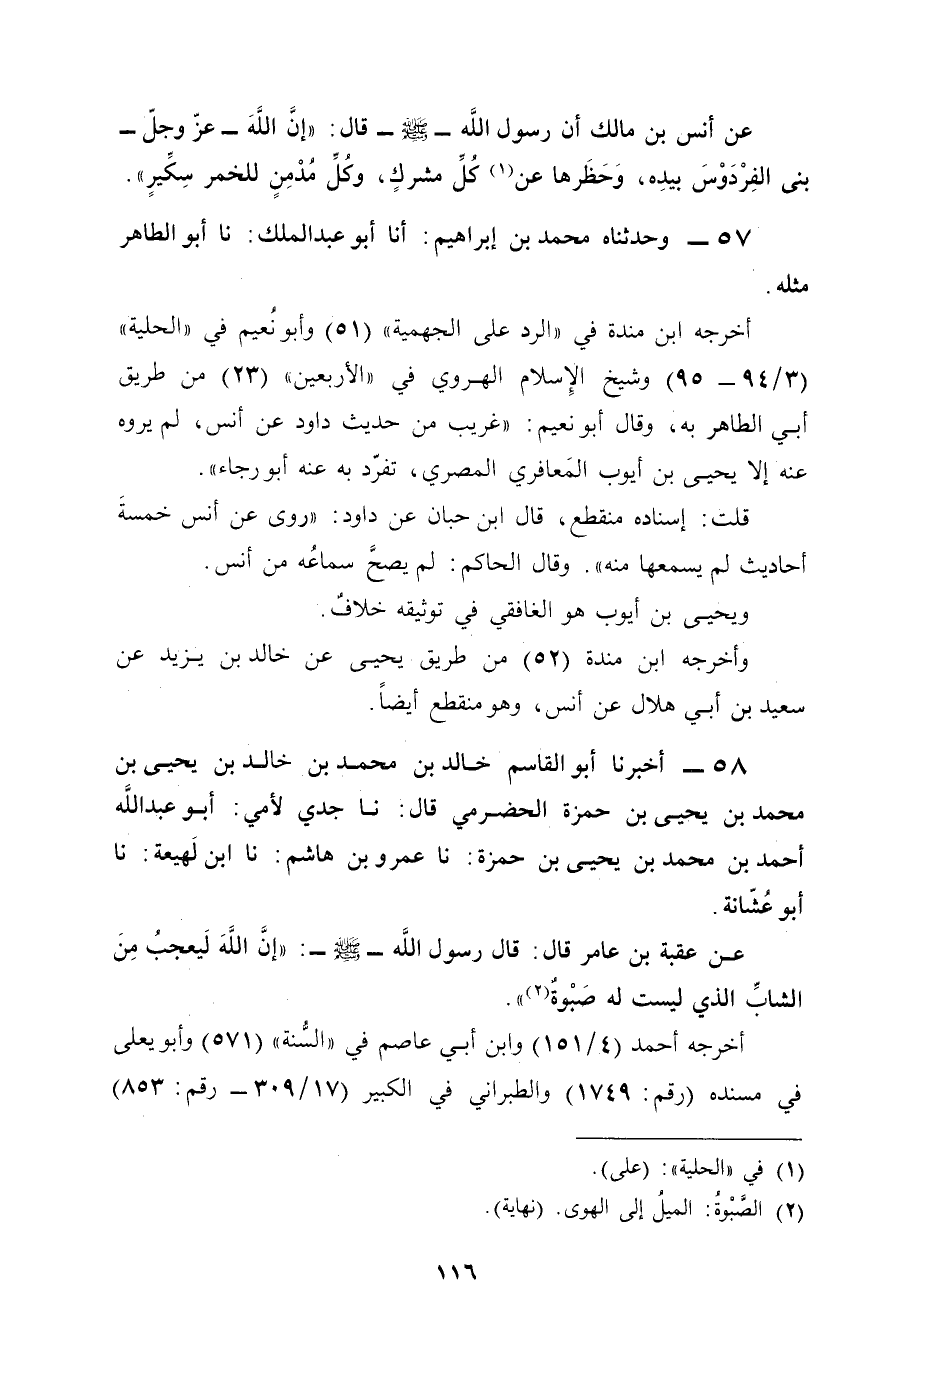 عن أنس بن مالك أن رسول اللَّه ــ ﷺ ــ قال: «إنَّ اللَّهَ ــ عزّ وجلّ ــ
بنى الفِرْدَوْسَ بيدِه، وَحَظَرها عن(١) كُلِّ مشركٍ، وكُلِّ مُدْمِنٍ للخمر سِكِّيرٍ».
٥٧ ــ وحدثناه محمد بن إبراهيم: أنا أبو عبدالملك: نا أبو الطاهر
مثله.
أخرجه ابن مندة في «الرد على الجهمية» (٥١) وأبو نُعيم في «الحلية»
(٩٤/٣ ــ ٩٥) وشيخ الإسلام الهروي في «الأربعين» (٢٣) من طريق
أبي الطاهر به، وقال أبو نعيم: «غريب من حديث داود عن أنس، لم يروه
عنه إلا يحيى بن أيوب المَعافري المصري، تفرّد به عنه أبو رجاء».
قلت: إسناده منقطع، قال ابن حبان عن داود: «روى عن أنس خمسةَ
أحاديث لم يسمعها منه». وقال الحاكم: لم يصحَّ سماعُه من أنس.
ويحيى بن أيوب هو الغافقي في توثيقه خلافٌ.
وأخرجه ابن مندة (٥٢) من طريق يحيى عن خالد بن يزيد عن
سعيد بن أبي هلال عن أنس، وهو منقطع أيضاً.
٥٨ ــ أخبرنا أبو القاسم خالد بن محمد بن خالد بن يحيى بن
محمد بن يحيى بن حمزة الحضرمي قال: نا جدي لأمي: أبو عبداللَّه
أحمد بن محمد بن يحيى بن حمزة: نا عمرو بن هاشم: نا ابن لَهيعة: نا
أبو عُشّانة.
عن عقبة بن عامر قال: قال رسول اللَّه ــ ﷺ ــ: «إنَّ اللَّهَ لَيعجبُ مِنَ
الشابِّ الذي ليست له صَبْوةٌ(٢)».
أخرجه أحمد (١٥١/٤) وابن أبي عاصم في «السُّنة» (٥٧١) وأبو يعلى
في مسنده (رقم: ١٧٤٩) والطبراني في الكبير (٣٠٩/١٧ ــ رقم: ٨٥٣)
(١) في «الحلية»: (على).
(٢) الصَّبْوةُ: الميلُ إلى الهوى. (نهاية).
١١٦